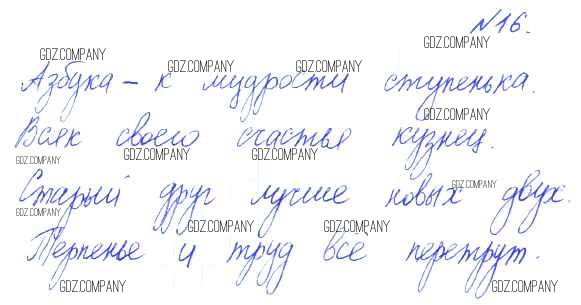 №16.
GDZ.COMPANY
GDZ.COMPANY
GDZ.COMPANY GDZ.COMPANY
Азбука – к мудрости ступенька.
GDZ.COMPANY
Всяк своего счастья кузнец.
GDZ.COMPANY GDZ.COMPANY GDZ.COMPANY
Старый друг лучше новых двух.
GDZ.COMPANY
GDZ.COMPANY
GDZ.COMPANY GDZ.COMPANY
Терпенье и труд всё перетрут.
GDZ.COMPANY GDZ.COMPANY